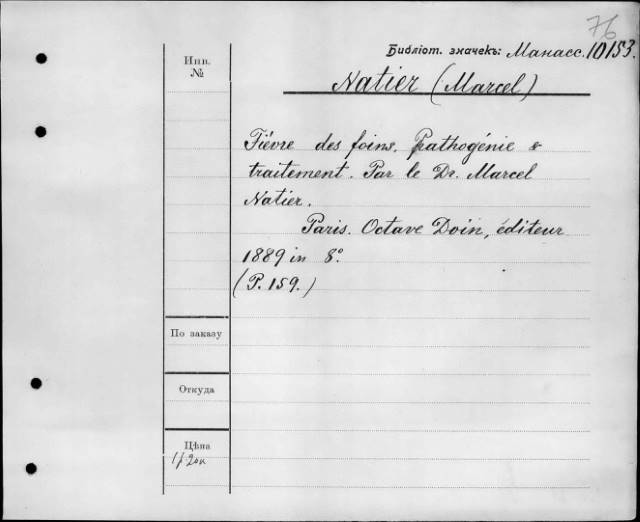 76
Библіот. значекъ: Манасс. 10153.
Инв.
№
Natier (Marcel)
Fiévre des foins. Pathogénie &
traitement. Par le Dr. Marcel
Natier.
Paris. Octave Doin, éditeur
1889 in 8º.
(P. 159.)
По заказу
Откуда
Цѣна